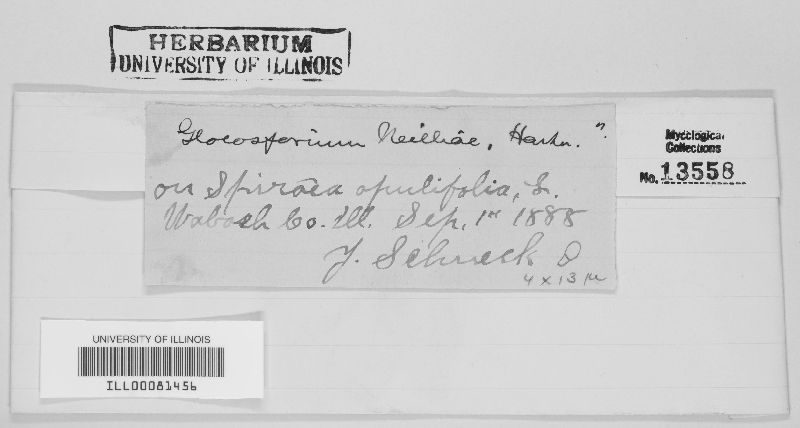 HERBARIUM
UNIVERSITY OF ILLINOIS
Gloeosporium Neilliae, Harkn. "?
Mycological
Collections
No. 13558
on Spiraea opulifolia, L.
Wabash Co. Ill. Sep. 1st 1888
J. Schneck
4 x 13 µ
UNIVERSITY OF ILLINOIS
ILL00081456